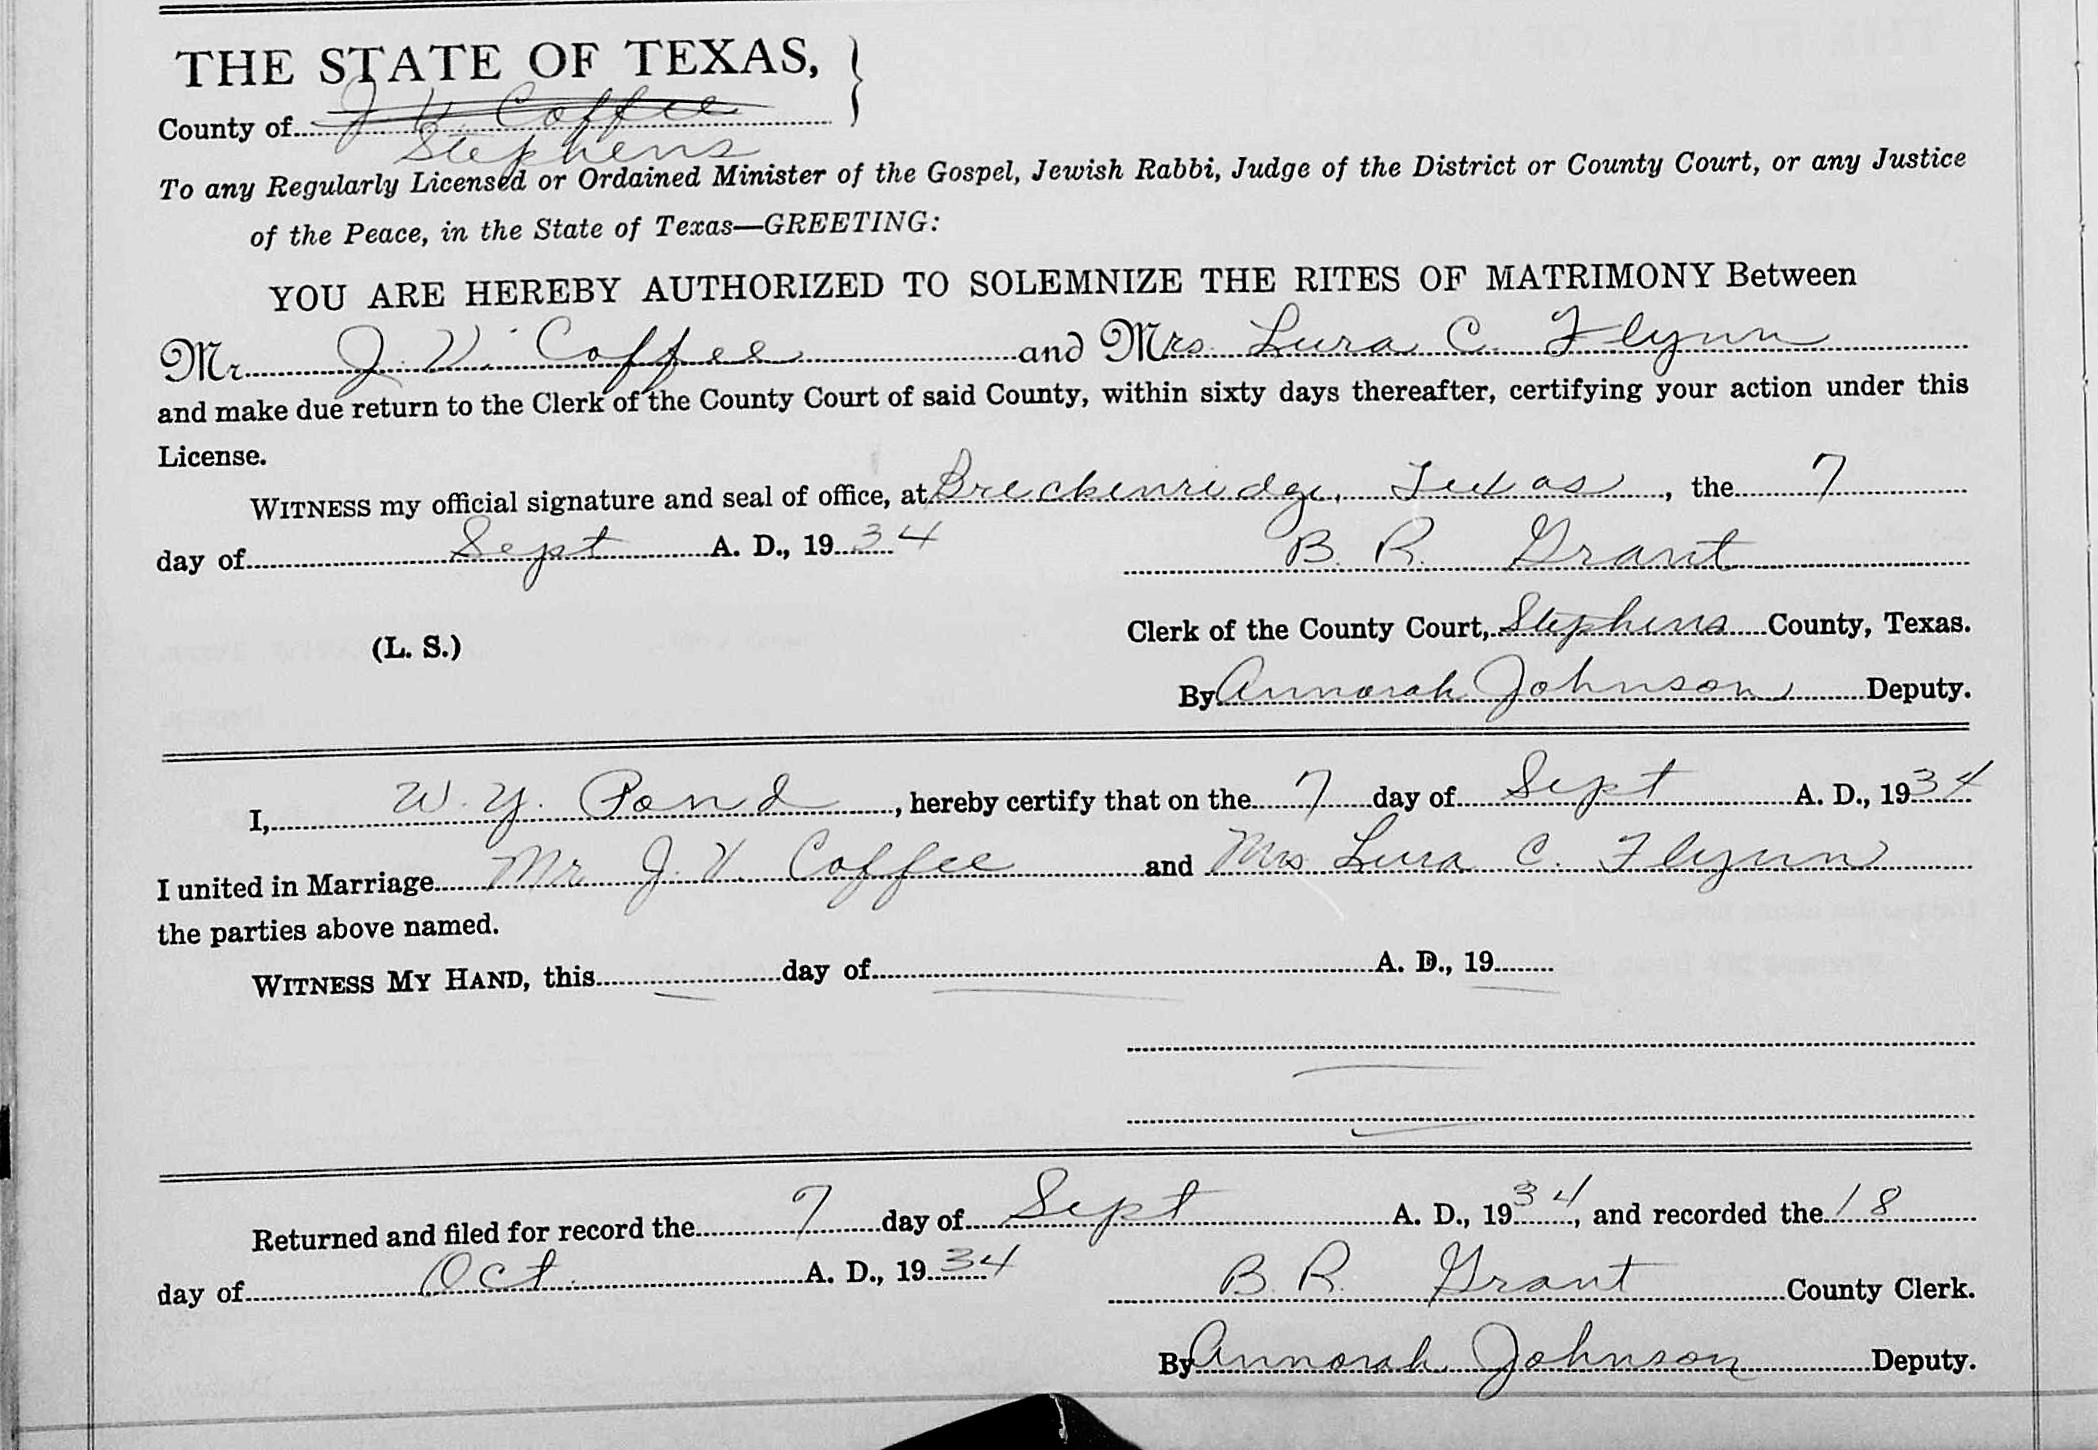 THE STATE OF TEXAS,
County of J V Coffee
Stephens
To any Regularly Licensed or Ordained Minister of the Gospel, Jewish Rabbi, Judge of the District or County Court, or any Justice
of the Peace, in the State of Texas—GREETING:
YOU ARE HEREBY AUTHORIZED TO SOLEMNIZE THE RITES OF MATRIMONY Between
Mr. J. V. Coffee and Mrs. Lura C. Flynn
and make due return to the Clerk of the County Court of said County, within sixty days thereafter, certifying your action under this
License.
WITNESS my official signature and seal of office, at Breckenridge, Texas, the 7
day of Sept A. D., 19 34
B. R. Grant
(L. S.) Clerk of the County Court, Stephens County, Texas.
By Annorah Johnson Deputy.
I, W. Y. Pond, hereby certify that on the 7 day of Sept A. D., 19 34
I united in Marriage Mr. J. V. Coffee and Mrs Lura C. Flynn
the parties above named.
WITNESS MY HAND, this day of A. D., 19
Returned and filed for record the 7 day of Sept A. D., 19 34, and recorded the 18
day of Oct. A. D., 19 34 B. R. Grant County Clerk.
By Annorah Johnson Deputy.